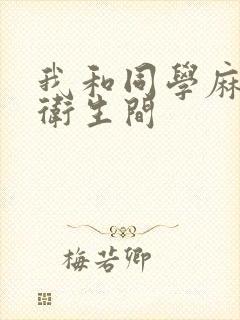 我和同學麻
衛生間
梅若卿